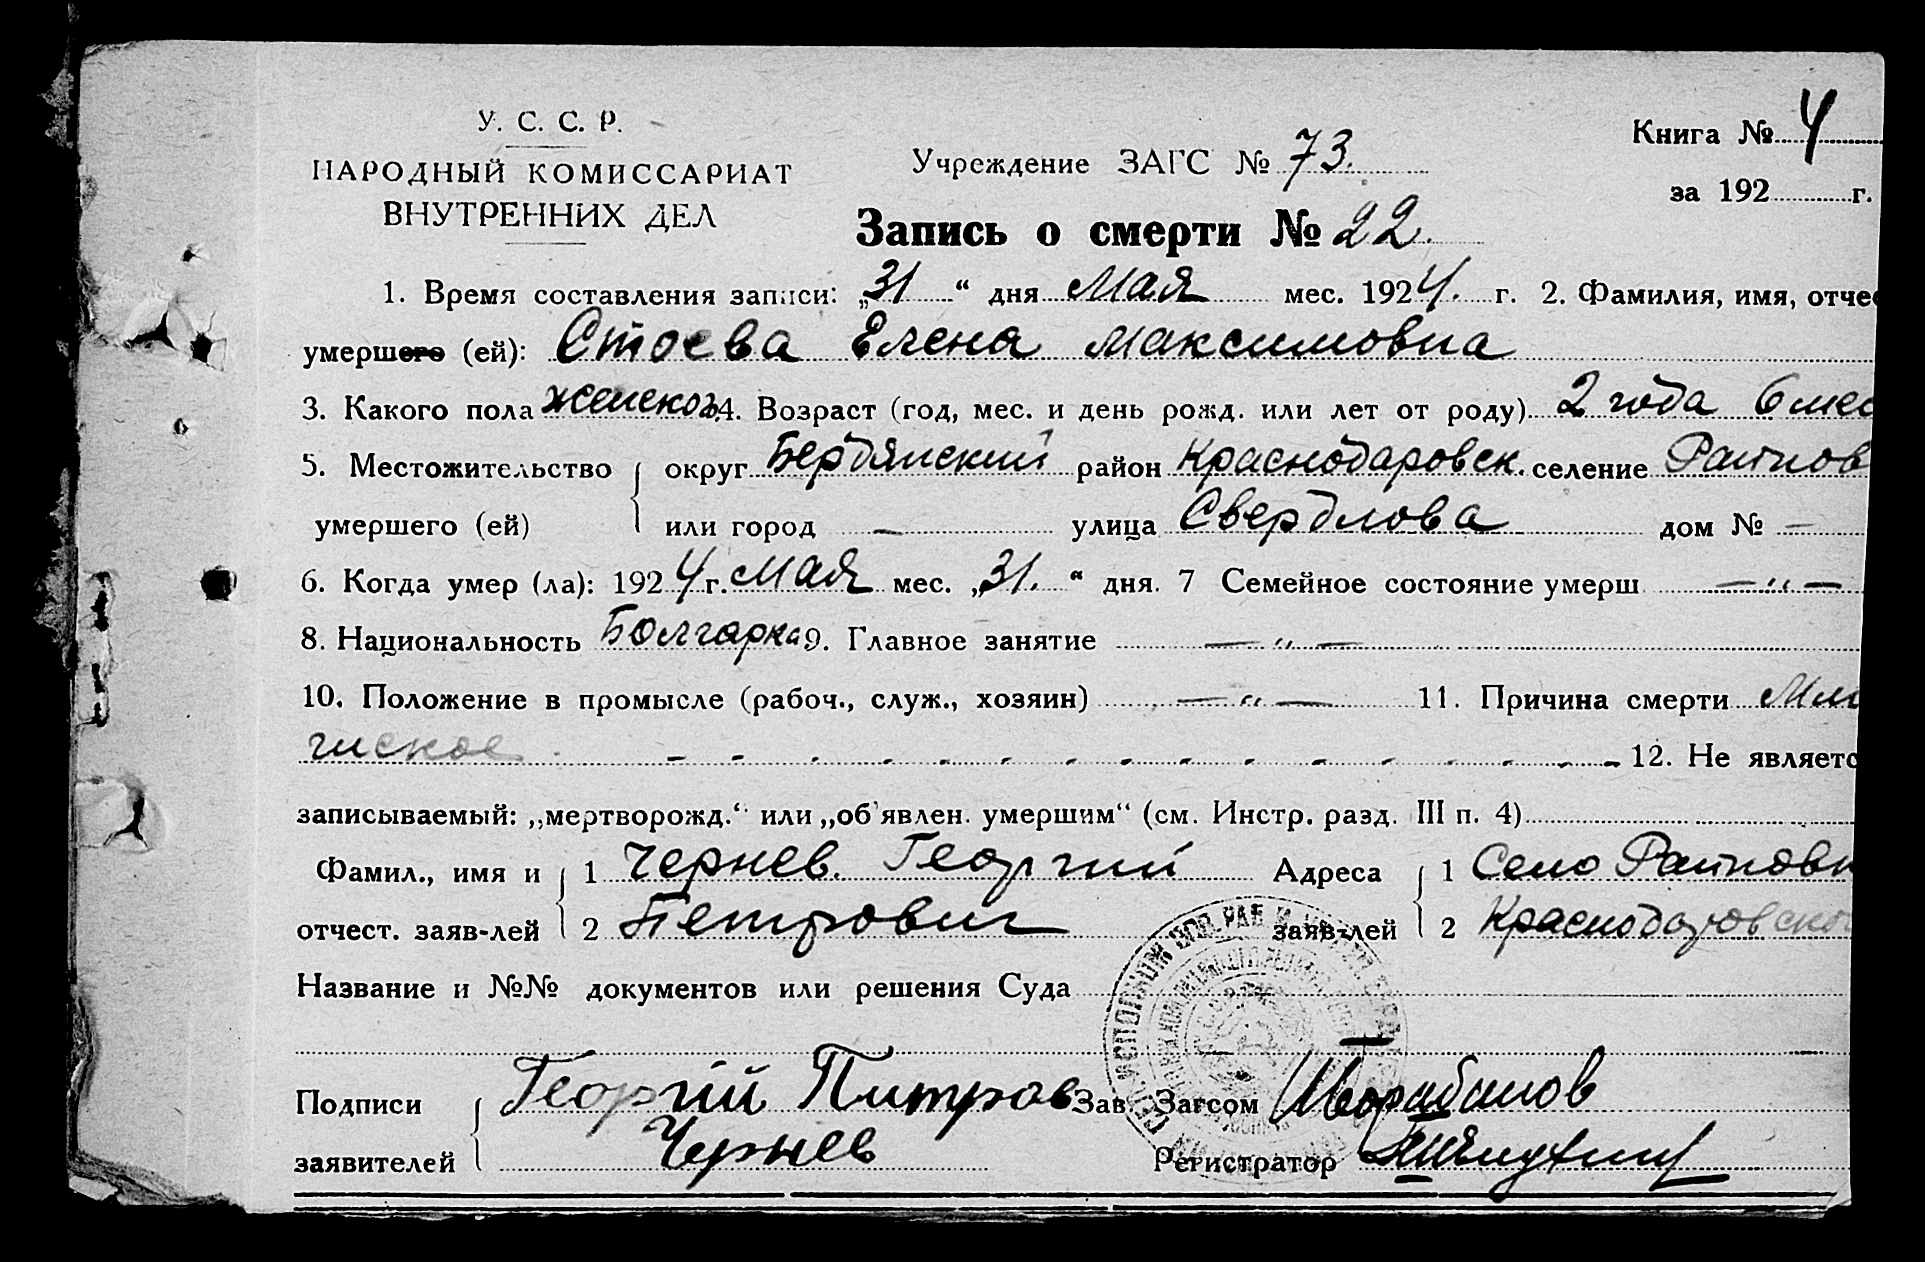 У. С. С. Р.
НАРОДНЫЙ КОМИССАРИАТ
ВНУТРЕННИХ ДЕЛ
Учреждение ЗАГС № 73.
Книга № 4
за 192 г.
Запись о смерти № 22.
1. Время составления записи: „31“ дня Мая мес. 1924. г. 2. Фамилия, имя, отчес
умершего (ей): Стоева Елена Максимовна
3. Какого пола женског 4. Возраст (год, мес. и день рожд. или лет от роду) 2 года 6 мес
5. Местожительство округ Бердянский район Краснодаровск. селение
умершего (ей) или город — улица Свердлова дом № —
6. Когда умер (ла): 1924 г. Мая мес. „31.“ дня. 7 Семейное состояние умерш — „ —
8. Национальность Болгарка 9. Главное занятие — „ —
10. Положение в промысле (рабоч., служ., хозяин) — „ — 11. Причина смерти
12. Не являетс
записываемый: „мертворожд.“ или „об'явлен. умершим“ (см. Инстр. разд. III п. 4)
Фамил., имя и 1 Чернев. Георгий Адреса 1 Село
отчест. заяв-лей 2 Петрович заяв-лей 2 Краснодаровской
Название и №№ документов или решения Суда
Подписи Георгій Питров Зав. Загсом
заявителей Чернев Регистратор